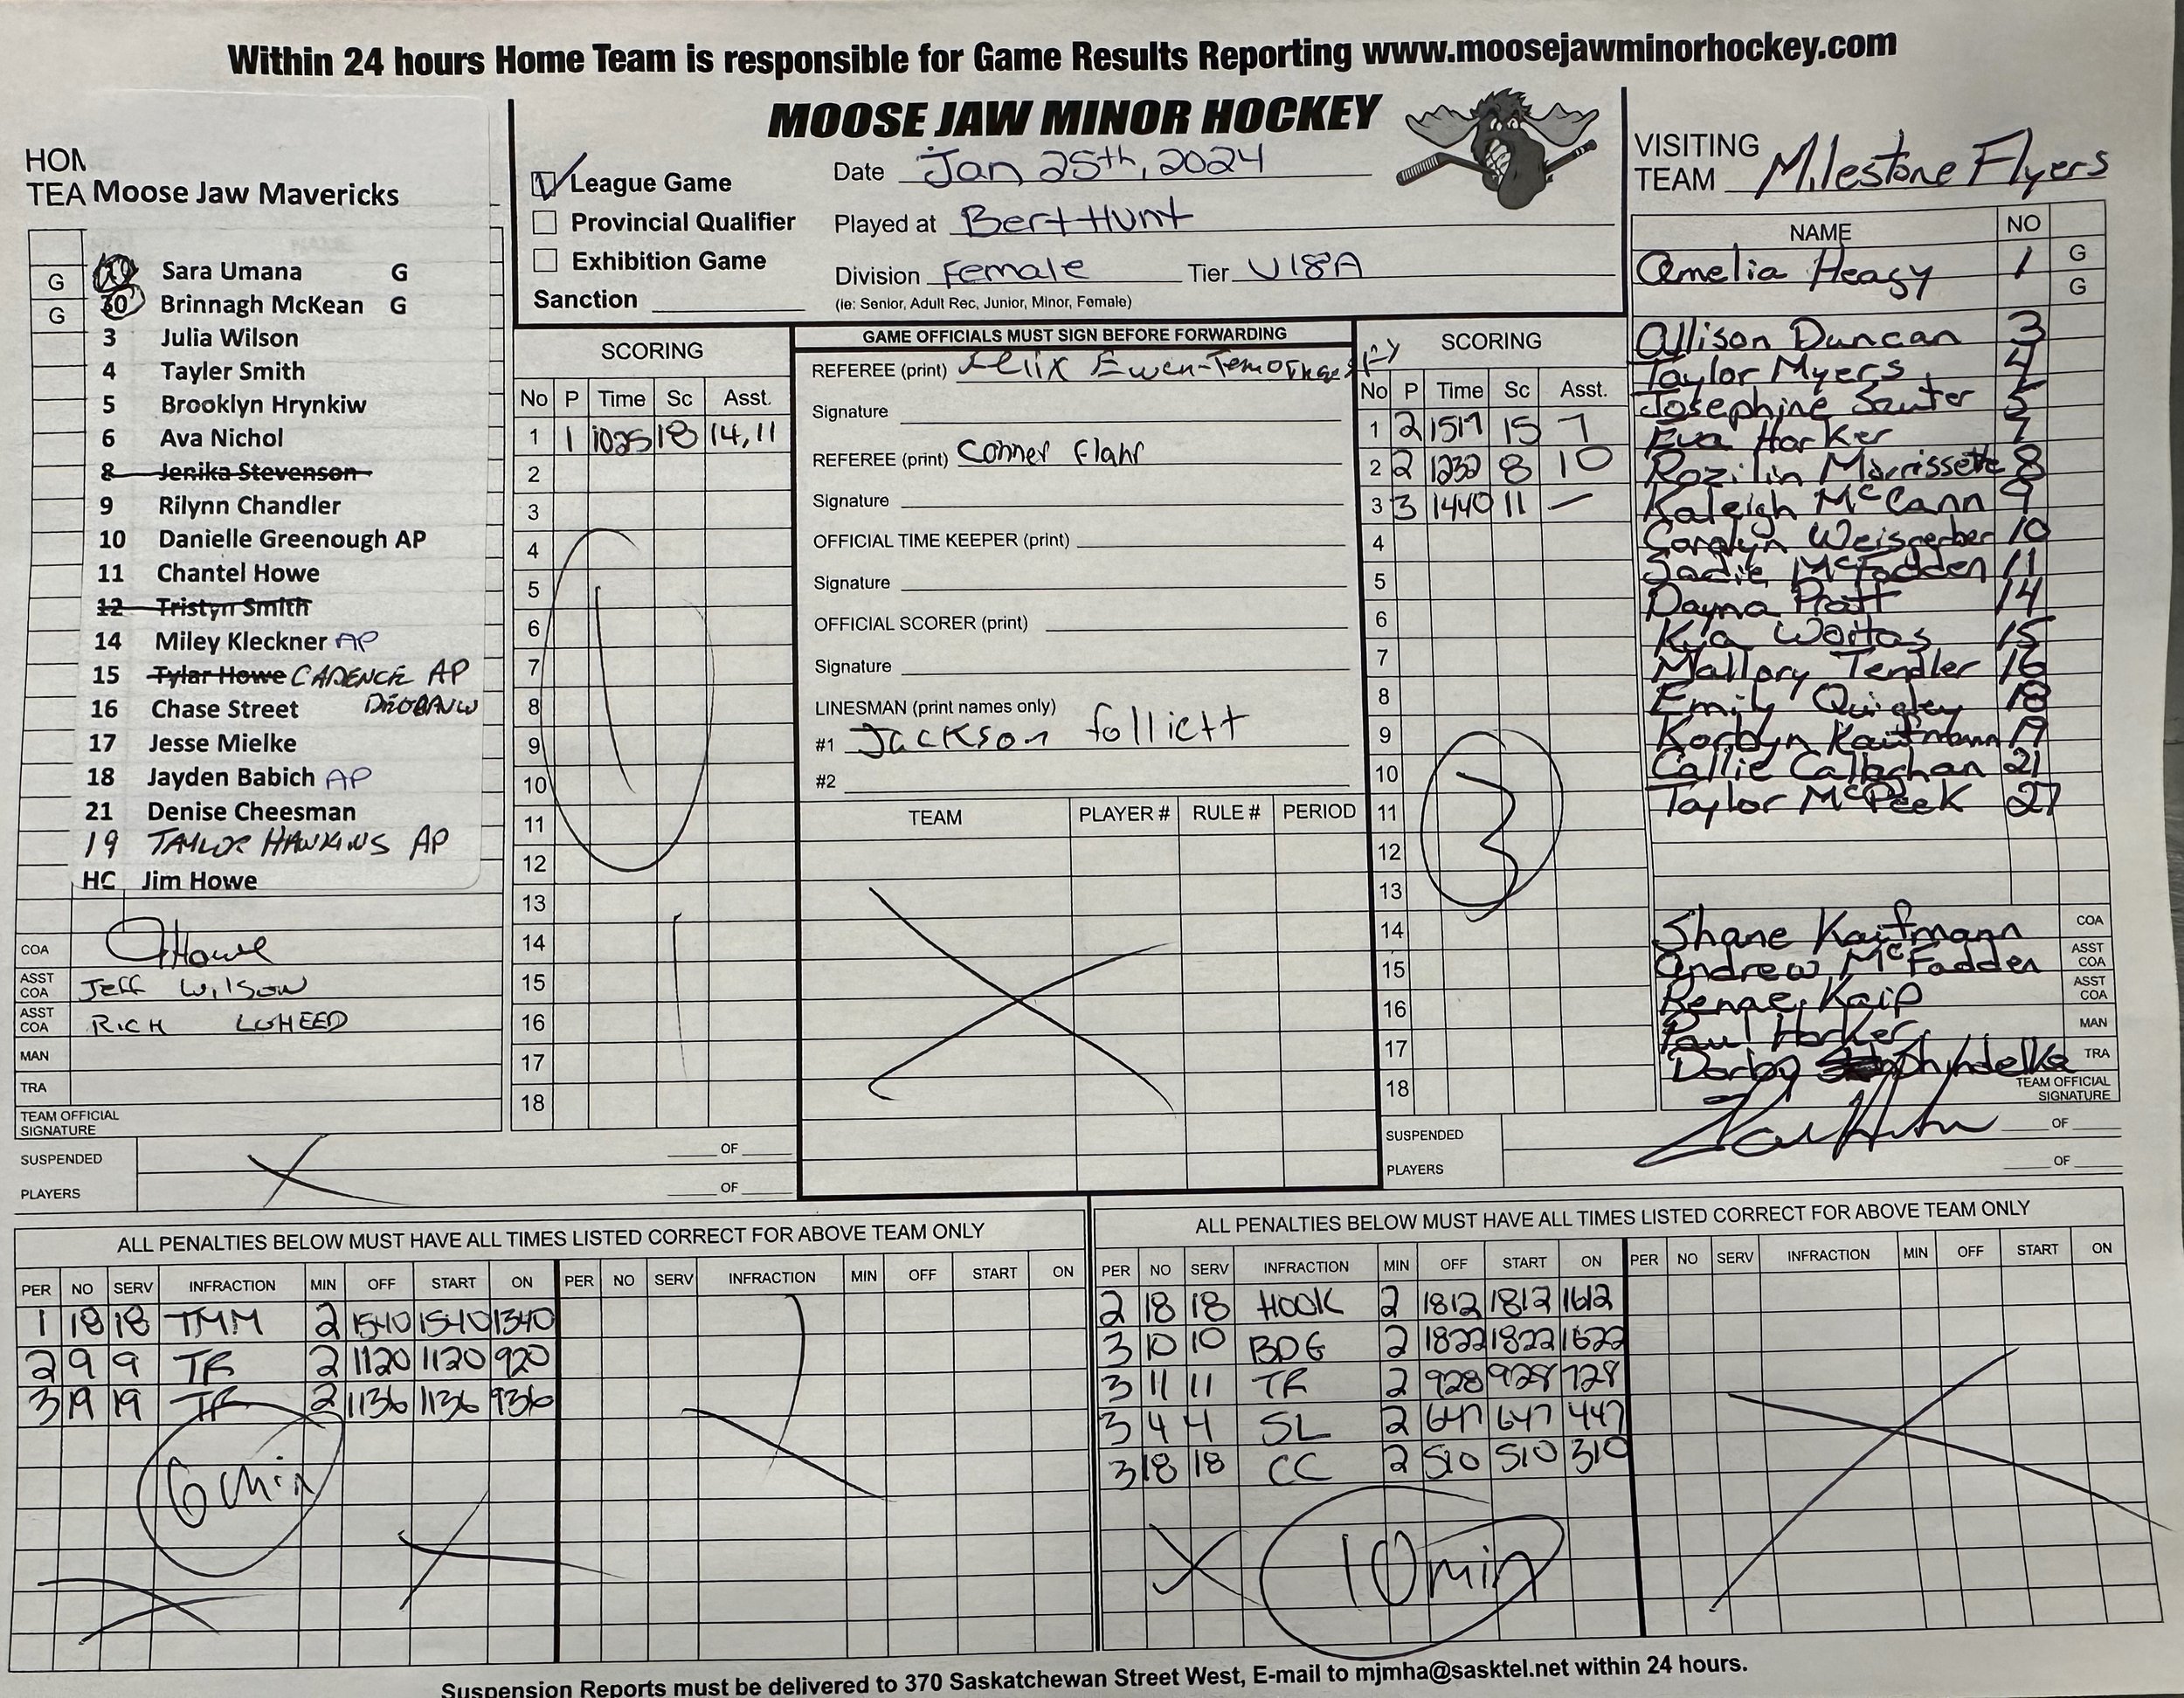 Within 24 hours Home Team is responsible for Game Results Reporting www.moosejawminorhockey.com
MOOSE JAW MINOR HOCKEY
HOM
TEA Moose Jaw Mavericks
G Sara Umana G
G 30 Brinnagh McKean G
3 Julia Wilson
4 Tayler Smith
5 Brooklyn Hrynkiw
6 Ava Nichol
8 Jenika Stevenson
9 Rilynn Chandler
10 Danielle Greenough AP
11 Chantel Howe
12 Tristyn Smith
14 Miley Kleckner AP
15 Tylar Howe CADENCE AP
16 Chase Street
17 Jesse Mielke
18 Jayden Babich AP
21 Denise Cheesman
19 TAYLOR HAWKINS AP
HC Jim Howe
COA JHowe
ASST COA Jeff Wilson
ASST COA RICH LOHEED
MAN
TRA
TEAM OFFICIAL SIGNATURE
SUSPENDED PLAYERS
OF
OF
League Game
Provincial Qualifier
Exhibition Game
Sanction
Date Jan 25th, 2024
Played at Bert Hunt
Division Female Tier U18A
(ie: Senior, Adult Rec, Junior, Minor, Female)
SCORING
No P Time Sc Asst.
1 1 1025 18 14, 11
2
3
4
5
6
7
8
9
10
11
12
13
14
15
16
17
18
1
GAME OFFICIALS MUST SIGN BEFORE FORWARDING
REFEREE (print) Felix Ewen
Signature
REFEREE (print) Conner Flahr
Signature
OFFICIAL TIME KEEPER (print)
Signature
OFFICIAL SCORER (print)
Signature
LINESMAN (print names only)
#1 Jackson Folliett
#2
TEAM PLAYER # RULE # PERIOD
SCORING
No P Time Sc Asst.
1 2 1517 15 7
2 2 1232 8 10
3 3 1440 11 —
4
5
6
7
8
9
10
11
12
13
14
15
16
17
18
3
SUSPENDED PLAYERS
OF
OF
VISITING
TEAM Milestone Flyers
NAME NO
Amelia Heagy 1 G
G
Allison Duncan 3
Taylor Myers 4
Josephine Sauter 5
Eva Harker 7
Rozilin Morrissette 8
Kaleigh McCann 9
Carolyn Weisgerber 10
Sadie McFadden 11
Dayna Pratt 14
Kia Woitas 15
Mallory Tendler 16
Emily Quigley 18
Korbyn Kaufmann 19
Callie Callaghan 21
Taylor McPeek 27
Shane Kaufmann COA
Andrew McFadden ASST COA
Renae Kaip ASST COA
Paul Harker MAN
Darby Shyndelka TRA
TEAM OFFICIAL SIGNATURE
ALL PENALTIES BELOW MUST HAVE ALL TIMES LISTED CORRECT FOR ABOVE TEAM ONLY
PER NO SERV INFRACTION MIN OFF START ON PER NO SERV INFRACTION MIN OFF START ON
1 18 18 TMM 2 1540 1540 1340
2 9 9 TR 2 1120 1120 920
3 19 19 TR 2 1136 1136 936
6 min
ALL PENALTIES BELOW MUST HAVE ALL TIMES LISTED CORRECT FOR ABOVE TEAM ONLY
PER NO SERV INFRACTION MIN OFF START ON PER NO SERV INFRACTION MIN OFF START ON
2 18 18 HOOK 2 1812 1812 1612
3 10 10 BDG 2 1822 1822 1622
3 11 11 TR 2 928 928 728
3 4 4 SL 2 647 647 447
3 18 18 CC 2 510 510 310
10 min
Suspension Reports must be delivered to 370 Saskatchewan Street West, E-mail to mjmha@sasktel.net within 24 hours.